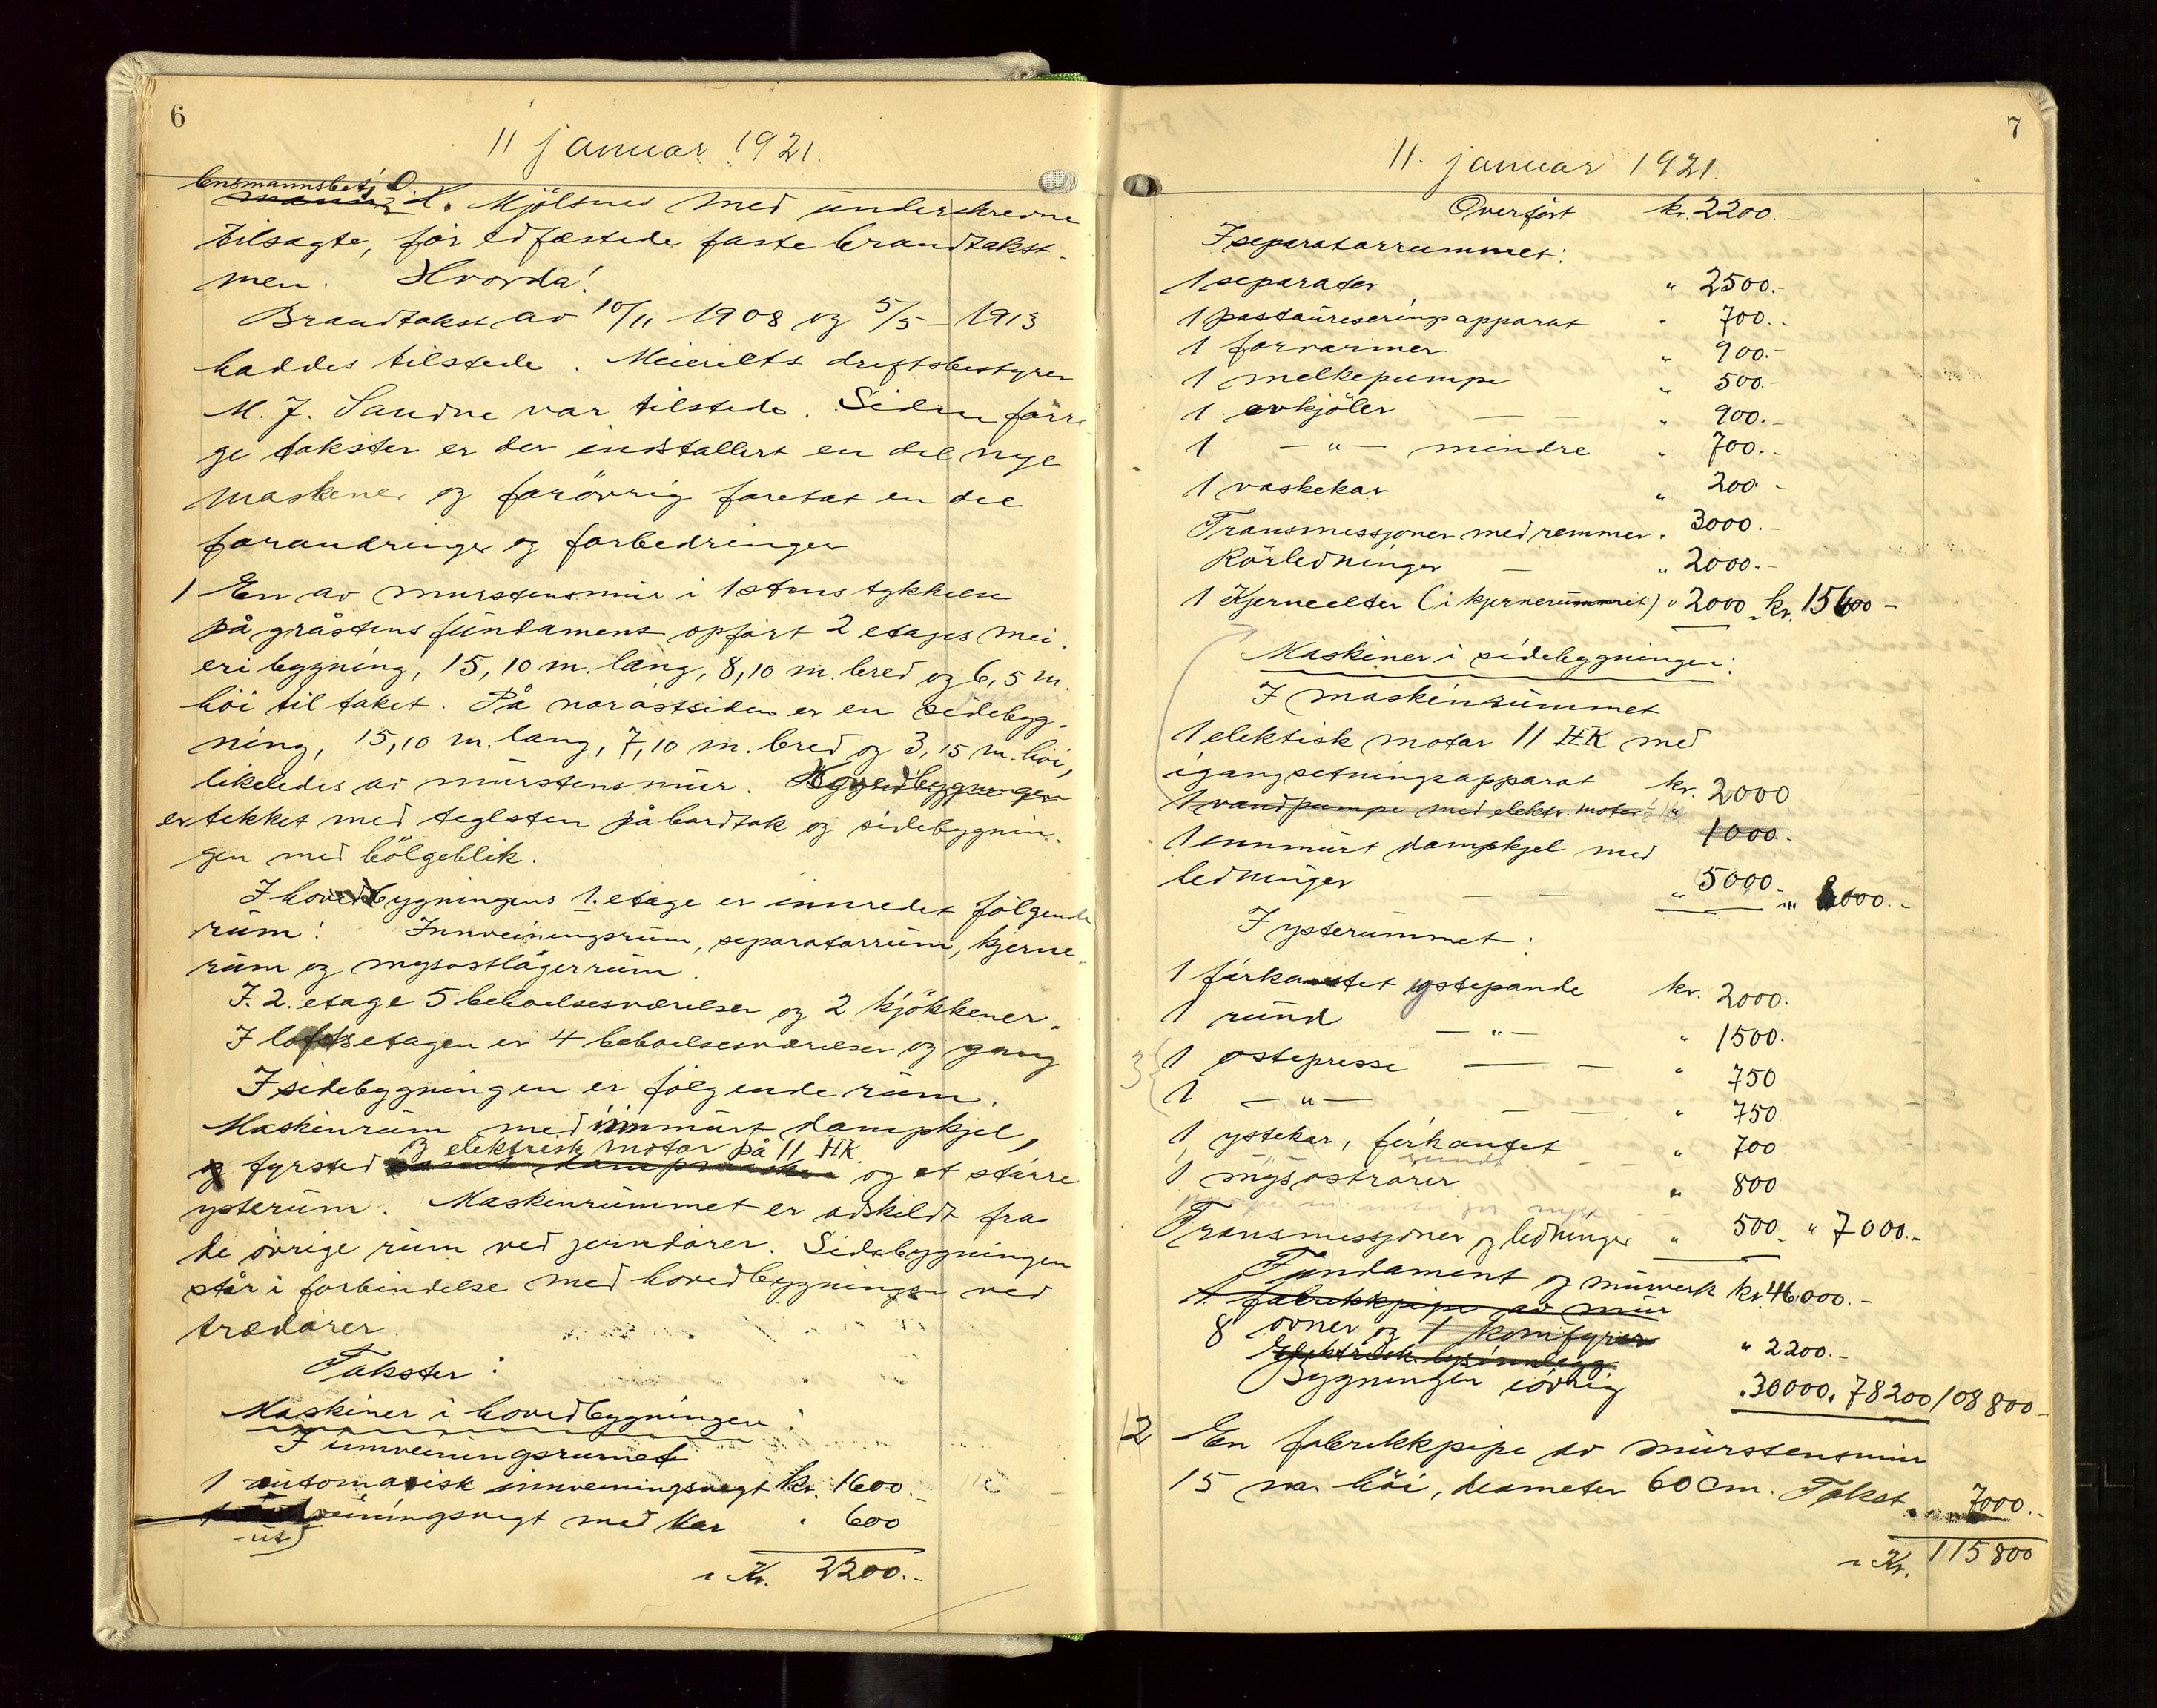 6
11 januar 1921.
lensmannsbetj. O.
H. Mjölsnes med underskrevne
tilsagte, før edfæstede faste brandtakst-
men. Hvorda!
Brandtakst av 10/11 1908 og 5/5 - 1913
haddes tilstede. Meieriets driftsbestyrer
M. J. Sandve var tilstede. Siden forri-
ge takster er der indstallert en del nye
maskener og forövrig foretat en del
forandringer og forbedringer
1 En av murstensmur i 1 stens tykkelse
på gråstens fundament opfört 2 etages mei-
eri bygning, 15,10 m. lang, 8,10 m. bred og 6,5 m.
höi til taket. På norøstsiden er en sidebygg-
ning, 15,10 m. lang, 7,10 m. bred og 3,15 m. höi,
likeledes av murstensmur. Hovedbygningen
er tekket med teglsten på bordtak og sidebygnin-
gen med bölgeblik.
I hovedbygningens 1. etage er innredet følgende
rum: Innveiningsrum, separatorrum, kjerne-
rum og mysostlagerrum.
I. 2. etage 5 beboelsesværelser og 2 kjökkener.
I loftsetagen er 4 beboelsesværelser og gang
I sidebygningen er følgende rum.
Maskinrum med innmurt dampkjel,
og elektrisk motor på 11 HK
og fyrsted samt dampmaskin og et større
ysterum. Maskinrummet er adskildt fra
de øvrige rum ved jerndører. Sidebygningen
står i forbindelse med hovedbygningen ved
trædører.
Takster:
Maskiner i hovedbygningen:
I innveiningsrumet
1 automatisk innveiningsvegt kr. 1600.-
veiningsvegt med kar " 600
ut
Kr. 2200.-
7
11. januar 1921.
Overført kr. 2200.-
I separatorrummet:
1 separator " 2500.-
1 pastøuriseringsapparat " 700.-
1 forvarmer " 900.-
1 melkepumpe " 500.-
1 avkjöler " 900.-
1 - " - mindre " 700.-
1 vaskekar " 200 -
Transmissjoner med remmer " 3000.-
Rörledninger " 2000.-
1 Kjerneelter (i kjernerummet) " 2000 kr. 15600 -
Maskiner i sidebygningen:
I maskinrummet
1 elektisk motor 11 HK med
igangsetningsapparat kr. 2000
1 vandpumpe med elektr. motor "
1000.-
1 innmurt dampkjel med
ledninger " 5000.- " 8000.-
I ysterummet:
1 firkantet ystepande kr. 2000.
1 rund - " - " 1500.
3 {
1 ostepresse " 750
1 - " - " 750
1 ystekar, firkantet " 700
rundt
1 mysostrører " 800
Transmissjoner og ledninger " 500. " 7000.-
Fundament og murverk kr. 46000.-
1 fabrikkpipe av mur
8 ovner og 1 komfyrer " 2200.-
Elektrisk lysinnlegg
Bygningen iövrig " 30000. " 78200 108 800-
2 En fabrikkpipe av murstensmur
15 m. höi, diameter 60 cm. Takst " 7000.-
Kr. 115 800